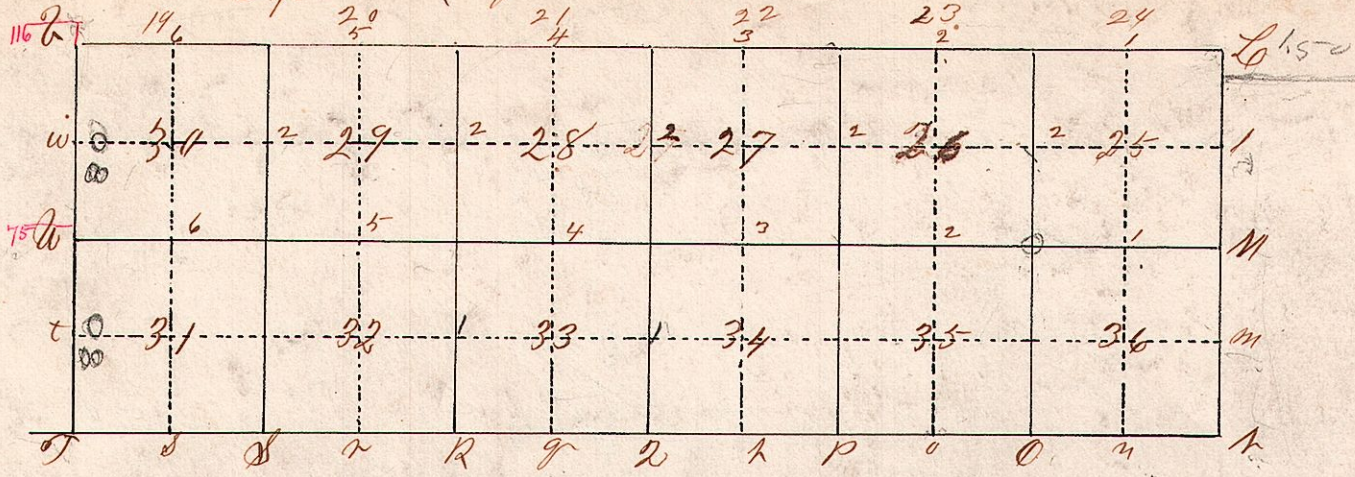 19 20 21 22 23 24
116 6 5 4 3 2 1 L 150
30 2 29 2 28 2 27 2 26 2 25 l
80
75 6 5 4 3 2 1 M
t 31 32 1 33 1 34 35 36 m
80
T s S r R q Q p P o O n N